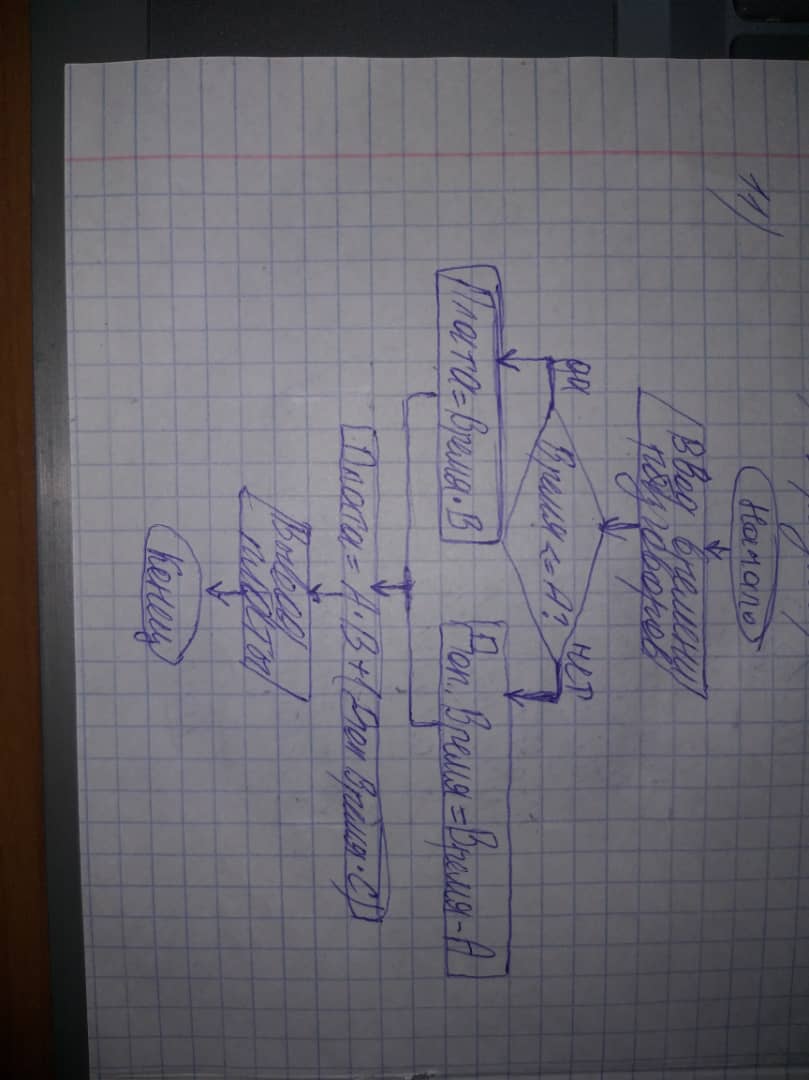 11)
Начало
Ввод времени
разговоров
Время <= A?
да
нет
Плата = Время · B
Доп. Время = Время - A
Плата = A · B + (Доп Время · C)
Вывод
платы
Конец